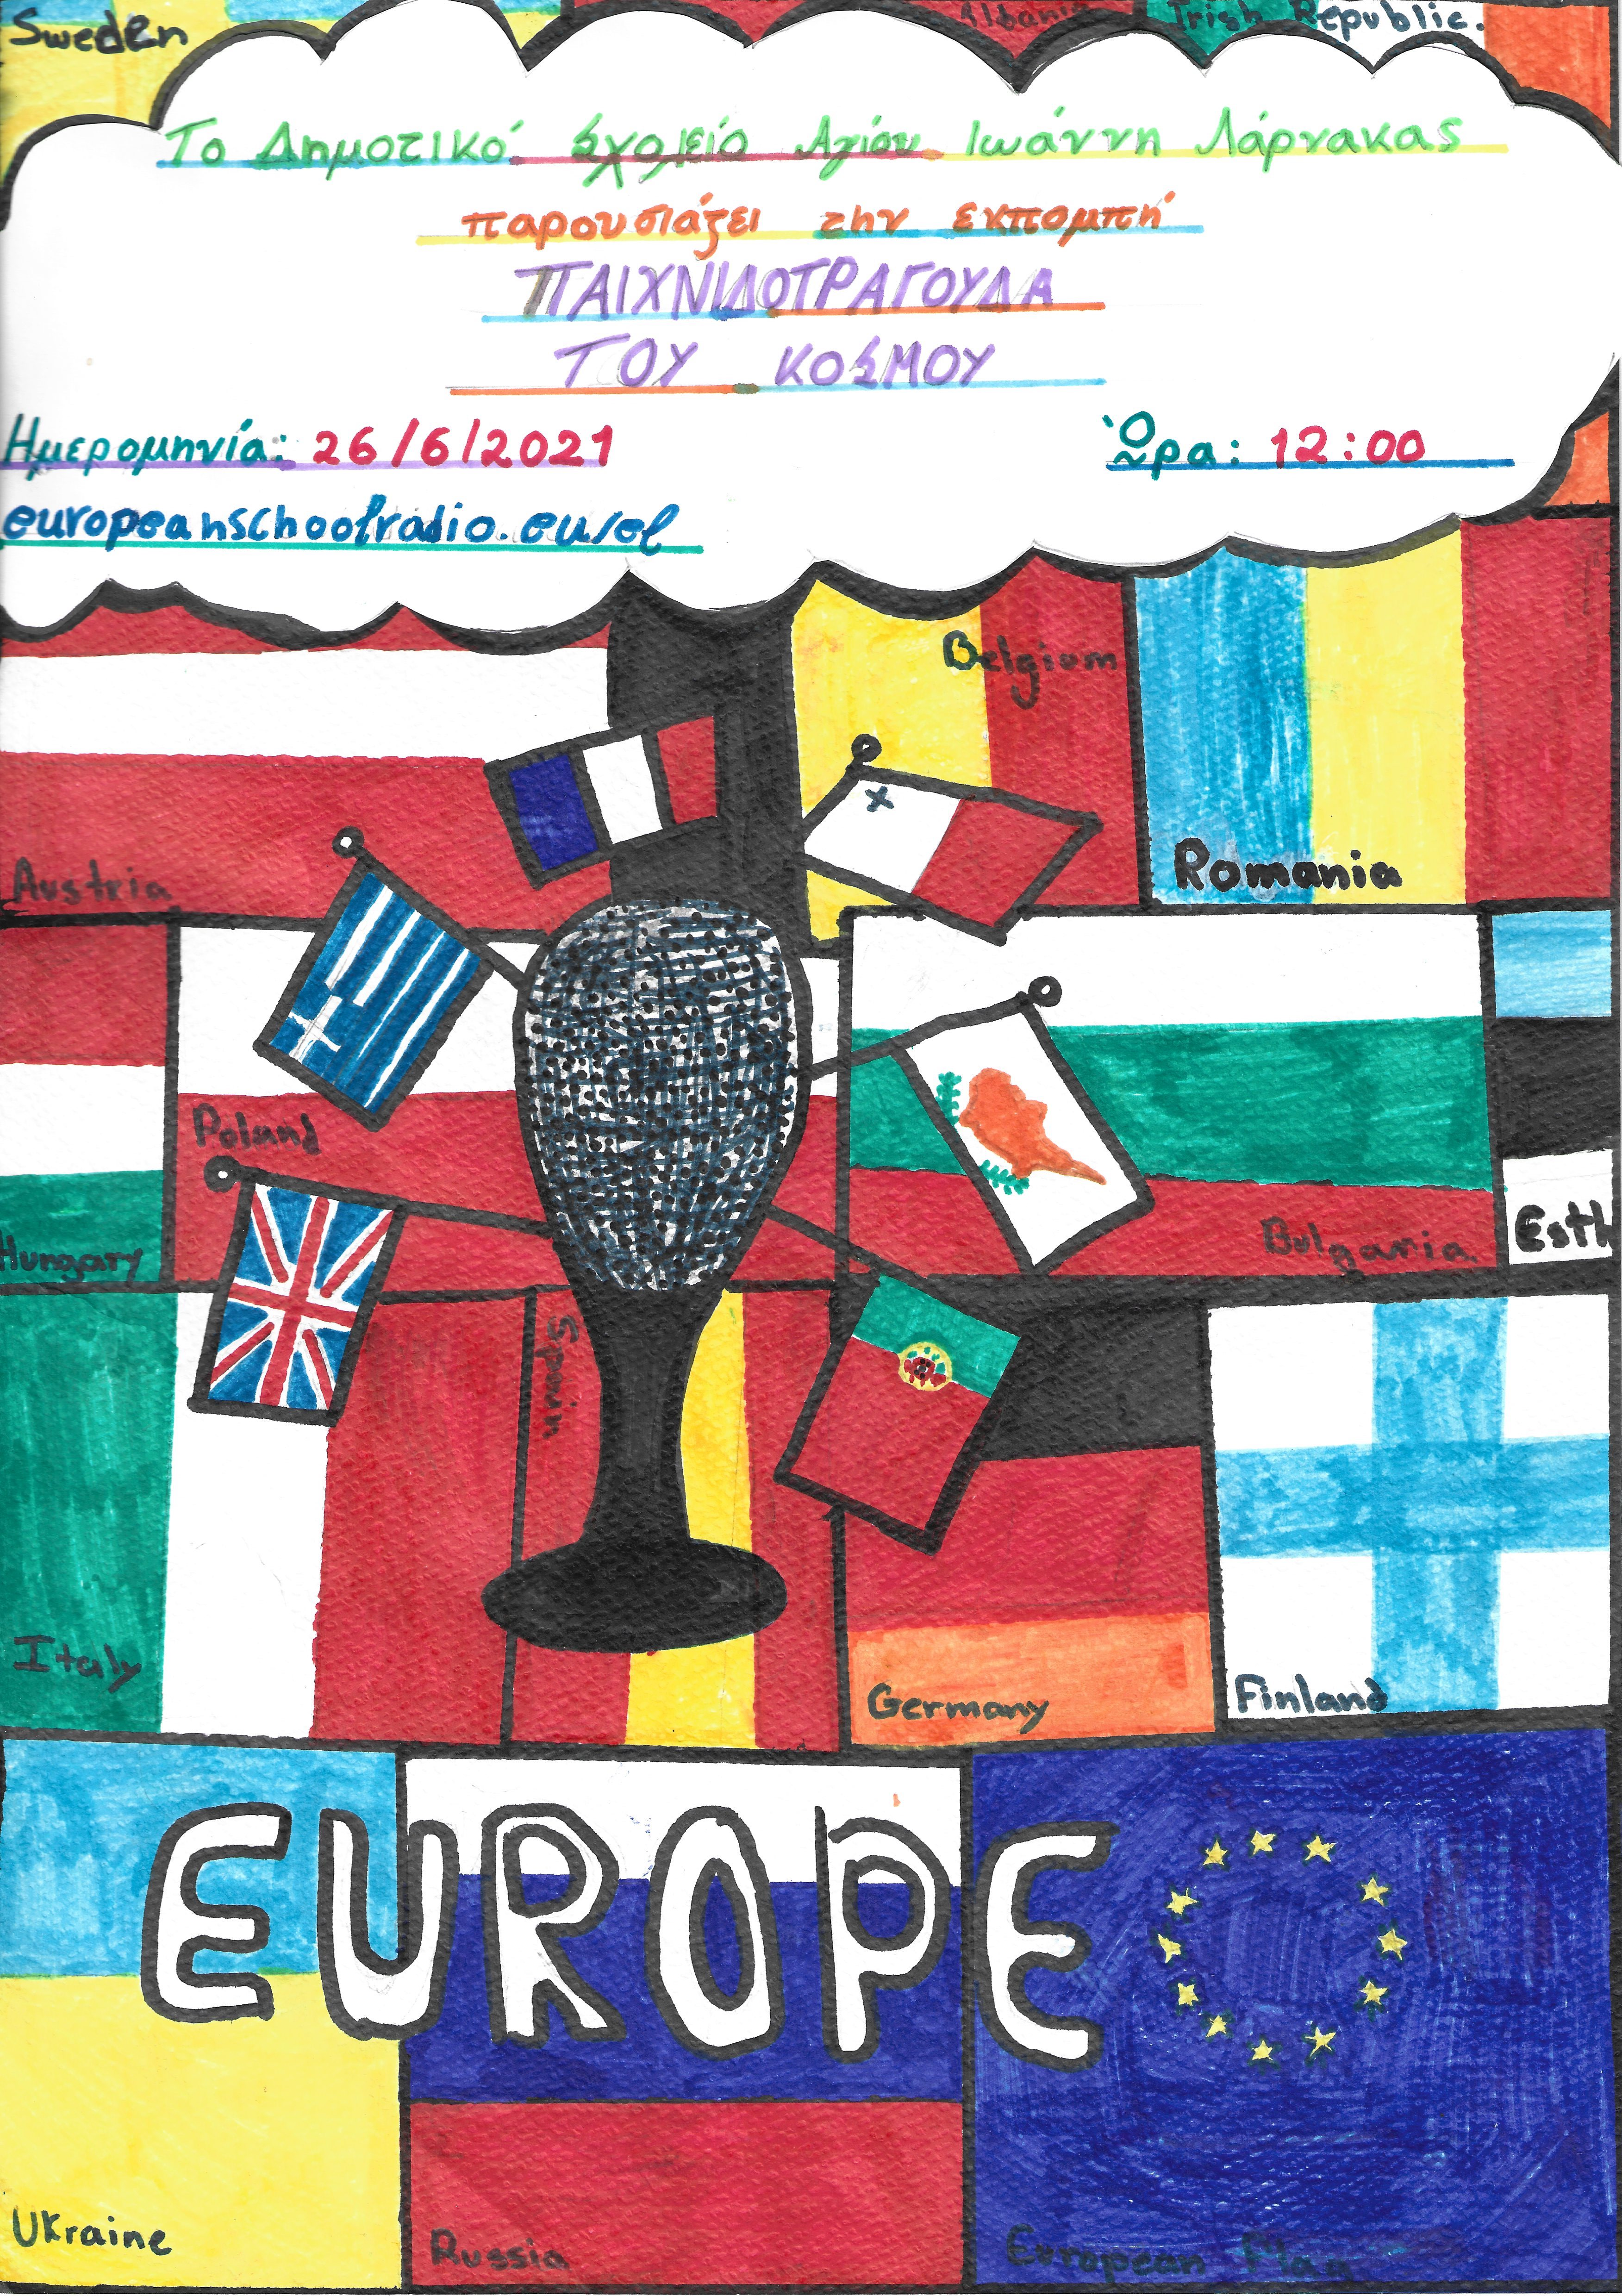 Sweden
Albania
Irish Republic.
Το Δημοτικό Σχολείο Αγίου Ιωάννη Λάρνακας
παρουσιάζει την εκπομπή
ΠΑΙΧΝΙΔΟΤΡΑΓΟΥΔΑ
ΤΟΥ ΚΟΣΜΟΥ
Ημερομηνία: 26/6/2021
Ώρα: 12:00
europeanschoolradio.eu/el
Belgium
Romania
Austria
Poland
Hungary
Bulgaria
Esth
Spain
Italy
Germany
Finland
EUROPE
Ukraine
Russia
European Flag